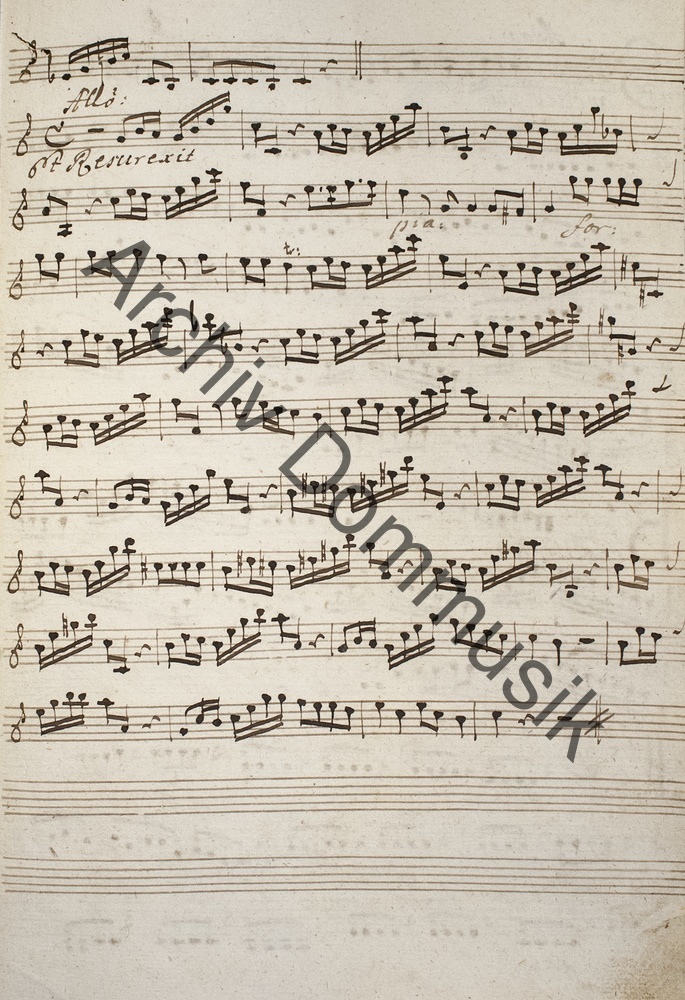 Allo:
Et Resurexit
pia:
for:
tr:
Archiv Dommusik